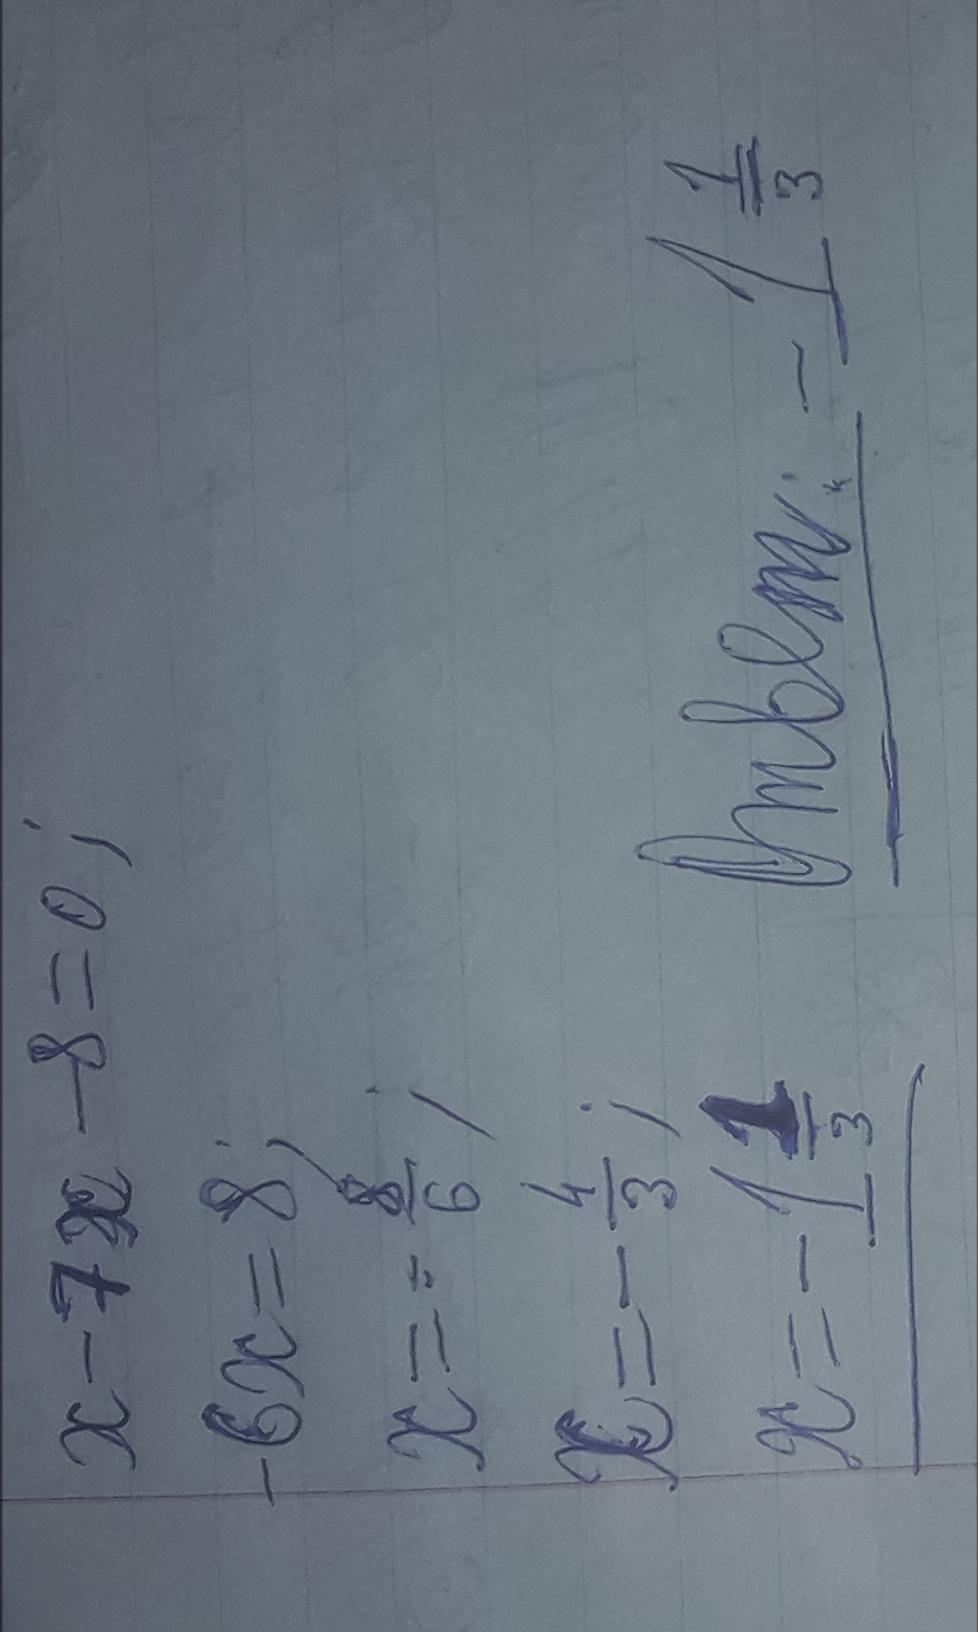 x - 7x - 8 = 0;
-6x = 8;
x = - 8/6;
x = - 4/3;
x = - 1 1/3
Ответ: - 1 1/3